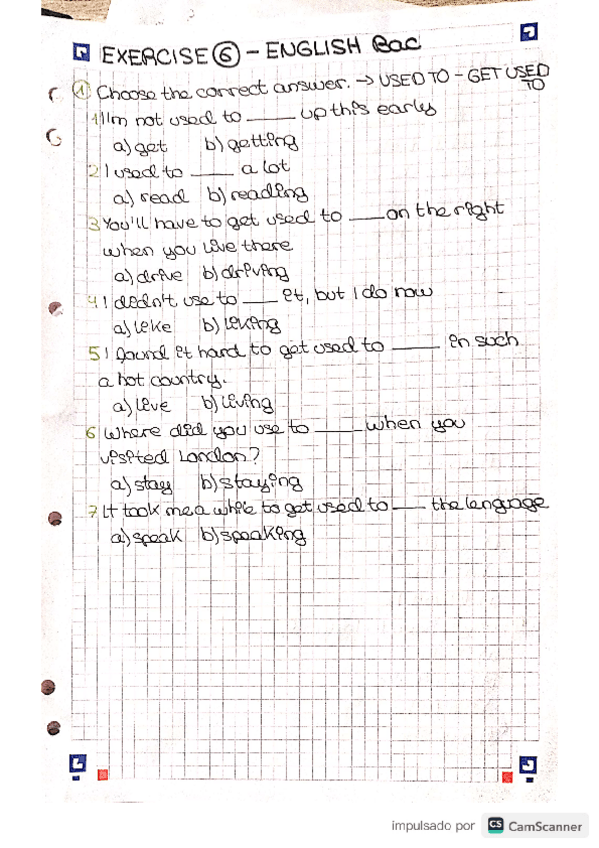 EXERCISE ⑥ - ENGLISH Bac
① Choose the correct answer. → USED TO - GET USED TO
1 I'm not used to _____ up this early
a) get b) getting
2 I used to _____ a lot
a) read b) reading
3 You'll have to get used to _____ on the right
when you live there
a) drive b) driving
4 I didn't use to _____ it, but I do now
a) like b) liking
5 I found it hard to get used to _____ in such
a hot country.
a) live b) living
6 Where did you use to _____ when you
visited London?
a) stay b) staying
7 It took me a while to get used to _____ the language
a) speak b) speaking
impulsado por CS CamScanner